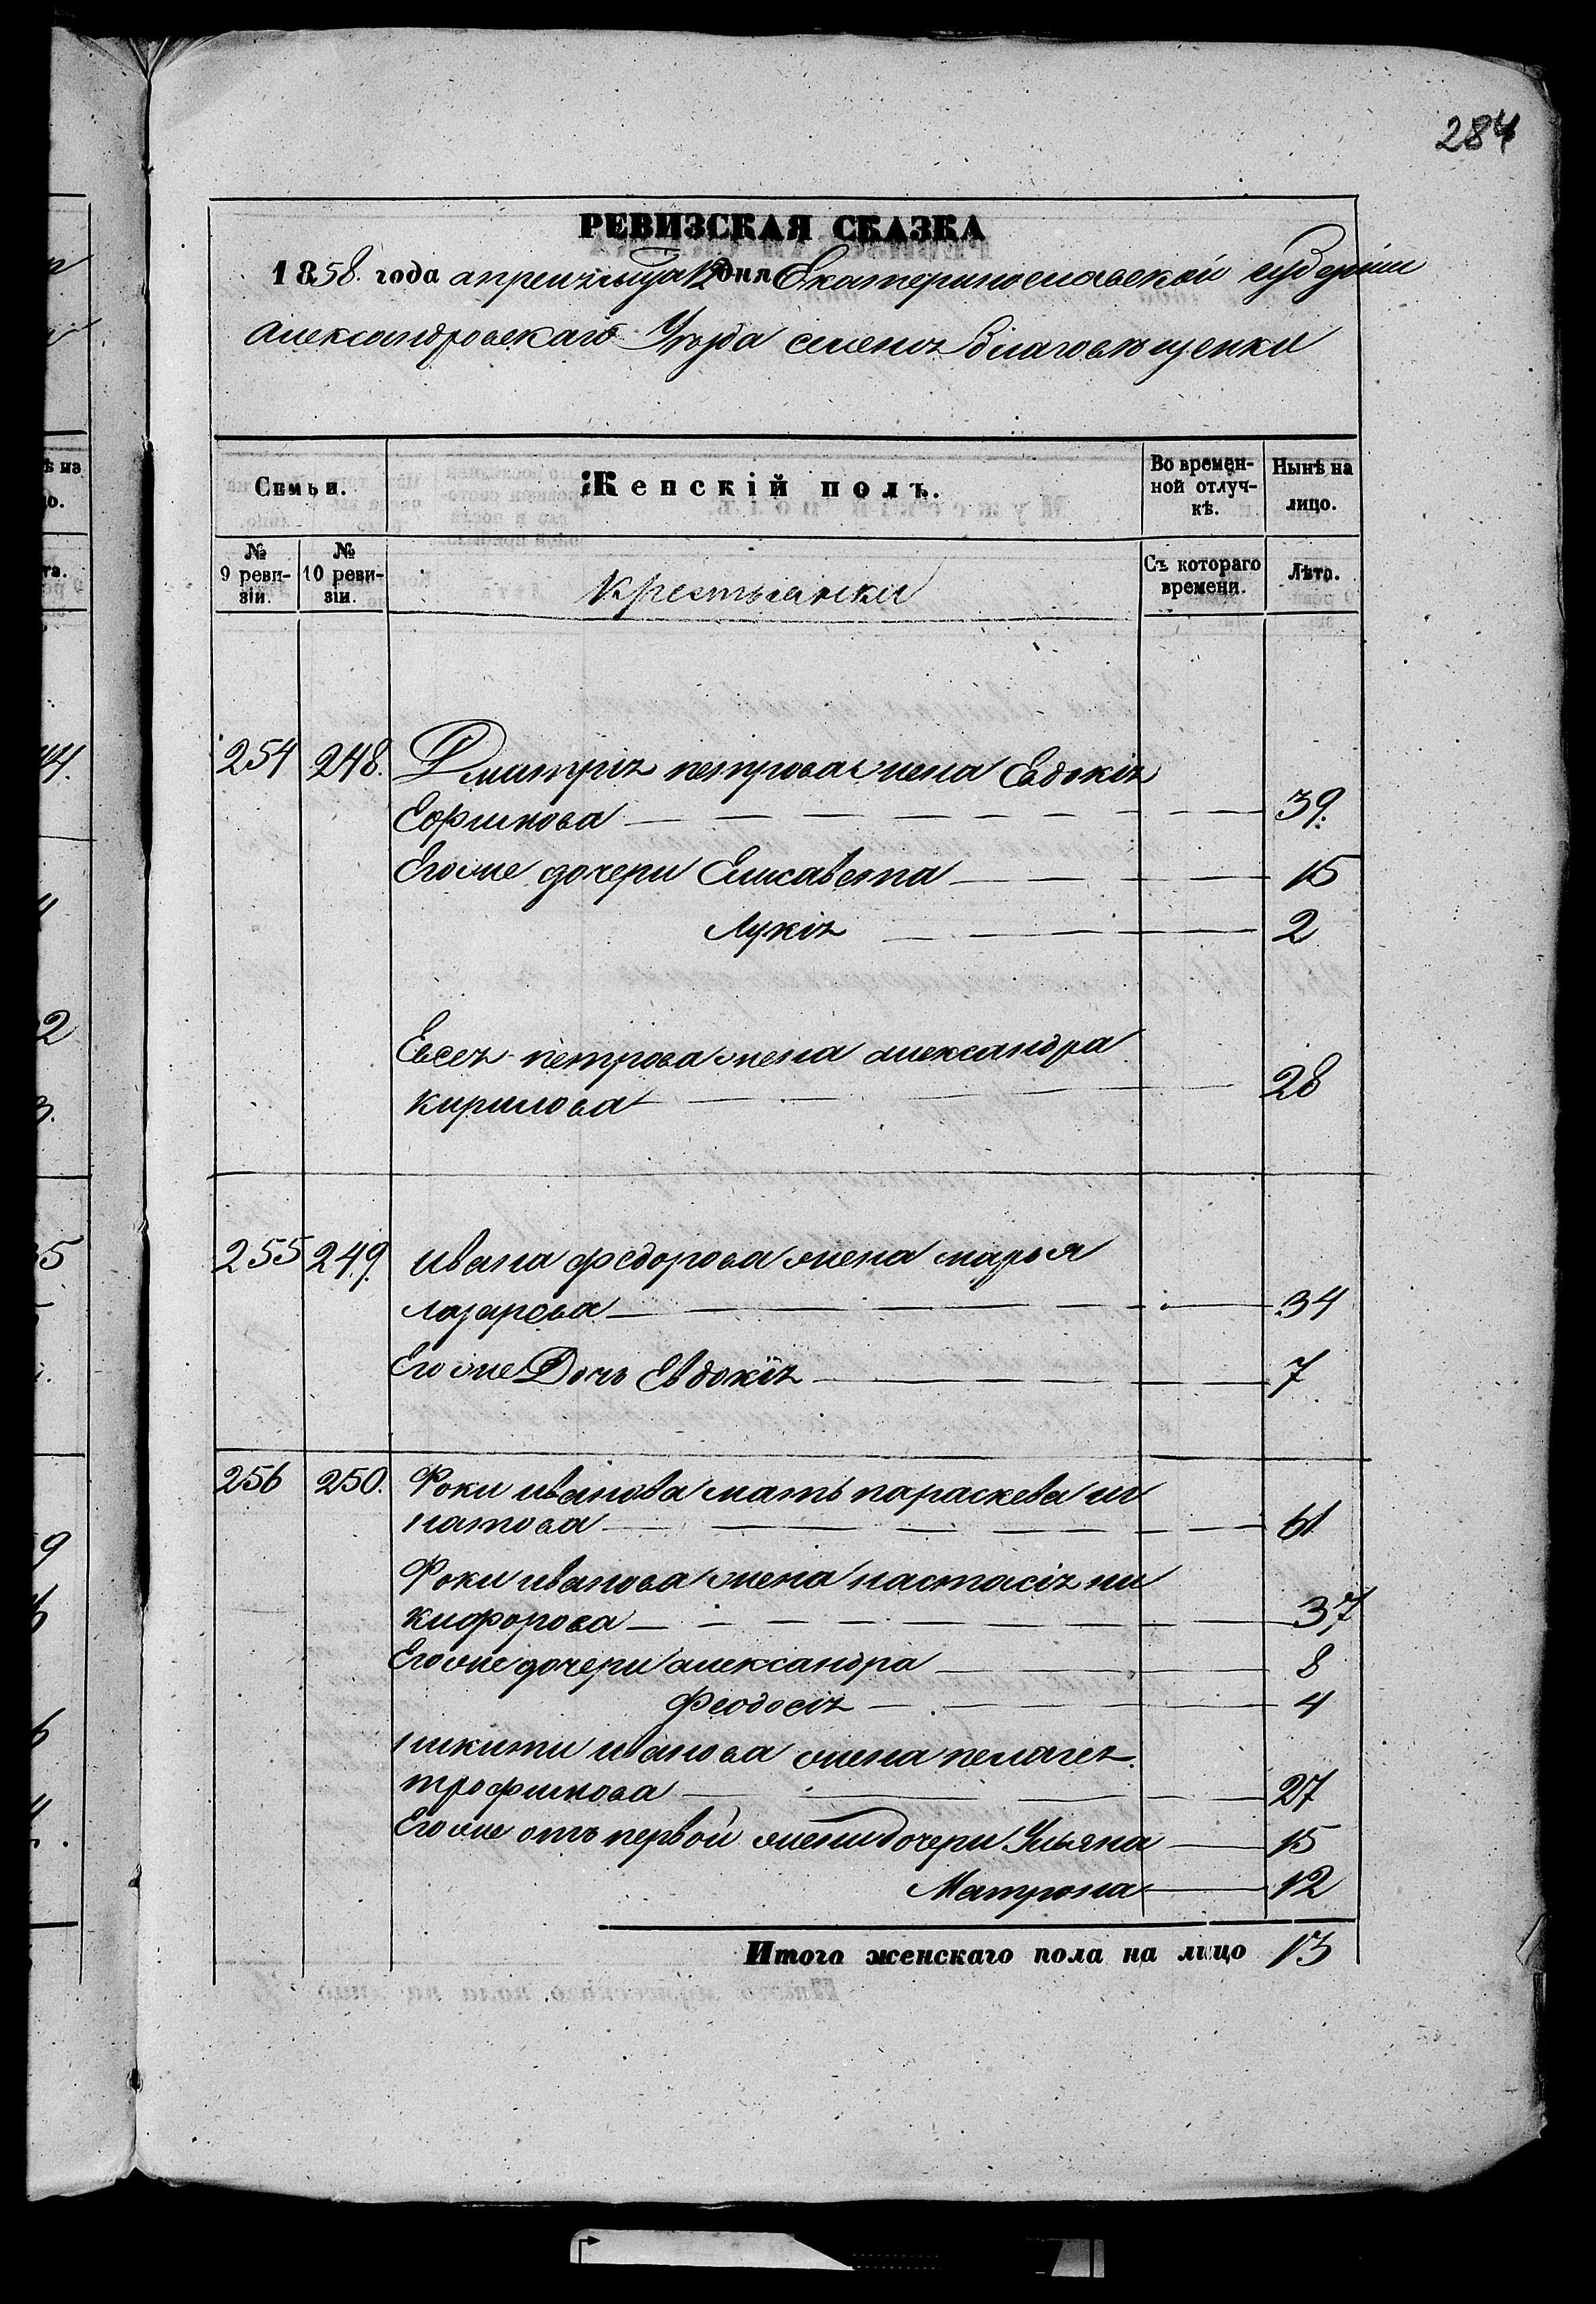 284
РЕВИЗСКАЯ СКАЗКА
1858. года апреля мца 12 дня Екатеринославской губернии
Александровскаго Уезда селенія Благовѣщенки
Семьи. Женскій полъ. Во времен-ной отлуч-кѣ. Нынѣ на лицо.
№ 9 реви-зіи. № 10 реви-зіи. Крестьянки Съ котораго времени. Лѣта.
254 248. Дмитрія петрова жена Евдокія
Ефимова 39.
Его же дочери Елисавета 15
Лукія 2
Евсея петрова жена александра
кирилова 28
255 249. ивана федорова жена марья
лазарева 34
Его же Дочь Евдокія 7
256 250. Фоки иванова мать параскева иг
натова 61
Фоки иванова жена настасія ни
кифорова 37
Его же дочери александра 8
Феодосія 4
никити иванова жена пелагея
трофимова 27
Его же отъ первой жени дочери Ульяна 15
Матрона 12
Итого женскаго пола на лицо 13